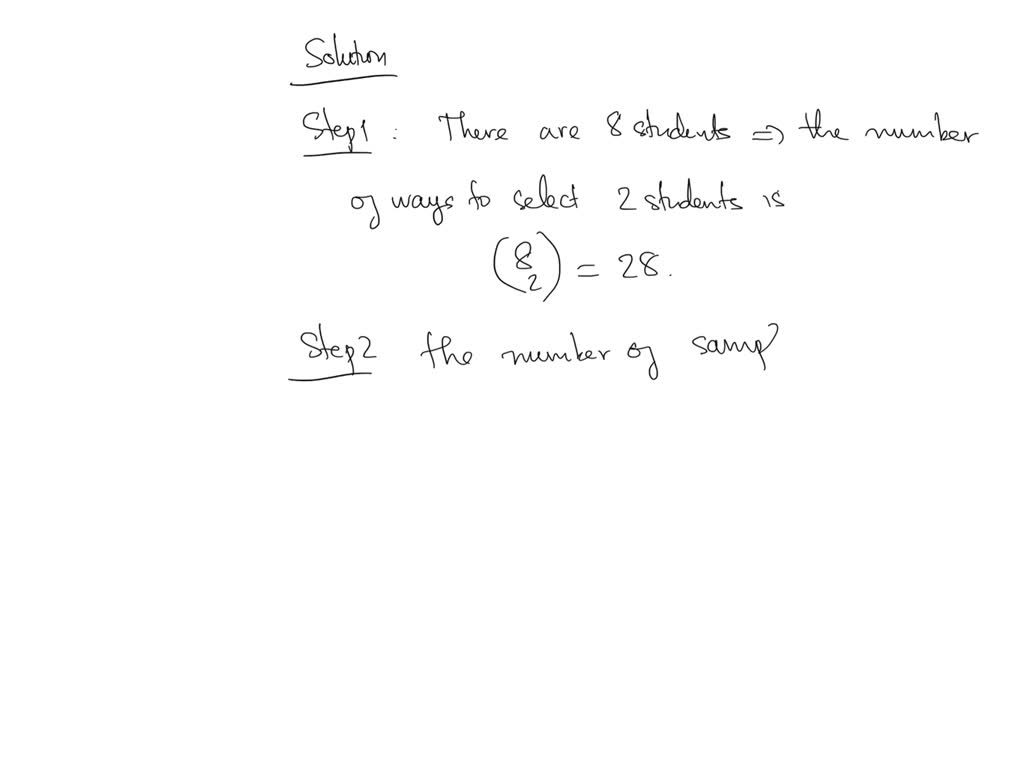 Solution
Step1 : There are 8 students ⇒ the number
of ways to select 2 students is
(8 2) = 28.
Step2 the number of samp